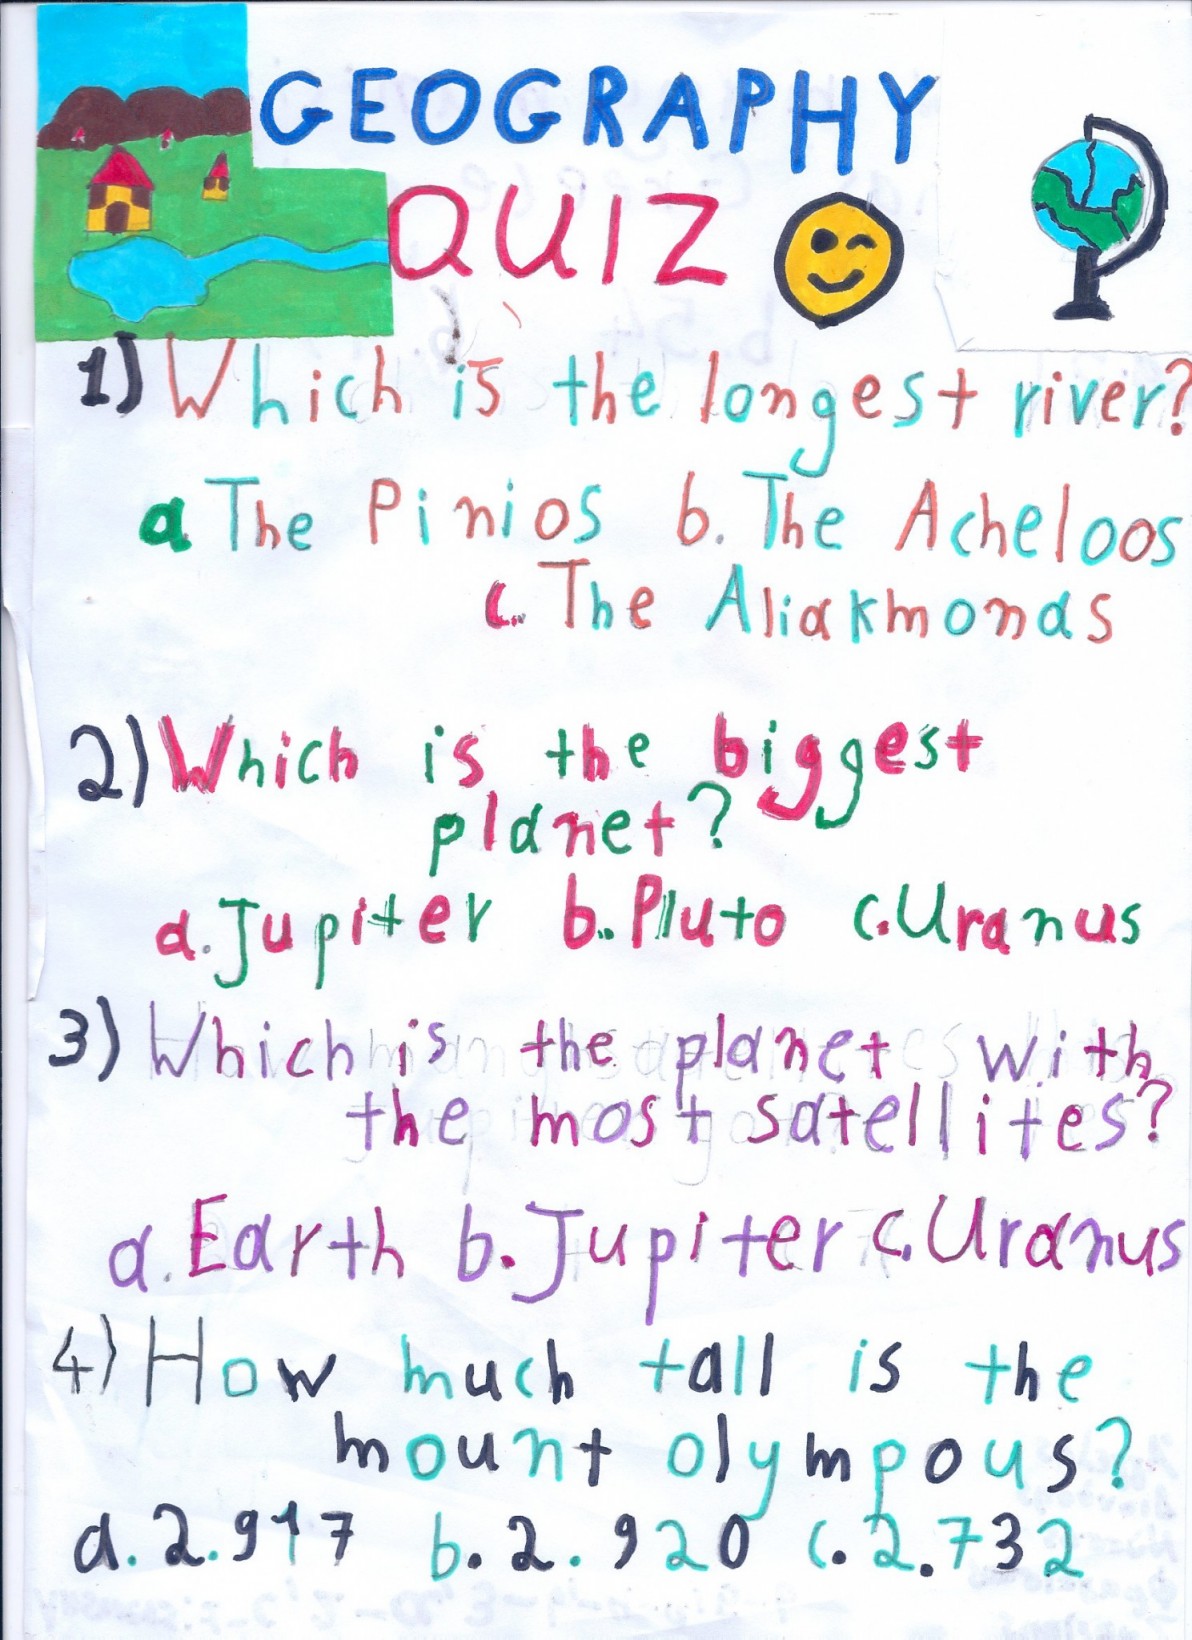 GEOGRAPHY
QUIZ
1) Which is the longest river?
a The Pinios b. The Acheloos
c. The Aliakmonas
2) Which is the biggest
planet?
a. Jupiter b. Pluto c. Uranus
3) Which is the planet with
the most satellites?
a. Earth b. Jupiter c. Uranus
4) How much tall is the
mount olympous?
a. 2.917 b. 2.920 c. 2.732